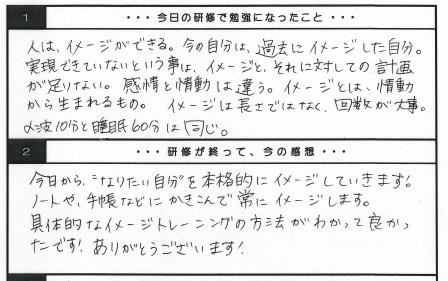 1 ・・・今日の研修で勉強になったこと・・・
人は、イメージができる。今の自分は、過去にイメージした自分。
実現できていないという事は、イメージと、それに対しての計画
が足りない。感情と情動は違う。イメージとは、情動
から生まれるもの。イメージは長さではなく、回数が大事。
α波10分と睡眠60分は同じ。
2 ・・・研修が終って、今の感想・・・
今日から、"なりたい自分"を本格的にイメージしていきます!
ノートや、手帳などにかきこんで常にイメージします。
具体的なイメージトレーニングの方法がわかって良かっ
たです! ありがとうございます!